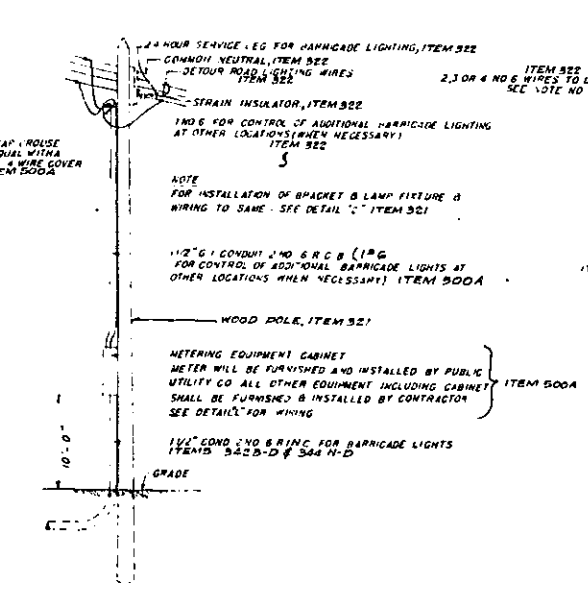 24 HOUR SERVICE LEG FOR BARRICADE LIGHTING, ITEM 322
COMMON NEUTRAL, ITEM 322
DETOUR ROAD LIGHTING WIRES
ITEM 322
STRAIN INSULATOR, ITEM 322
1 NO 6 FOR CONTROL OF ADDITIONAL BARRICADE LIGHTING
AT OTHER LOCATIONS (WHEN NECESSARY)
ITEM 322
ITEM 322
2, 3 OR 4 NO 6 WIRES TO
SEE NOTE NO
CROUSE
EQUAL WITH A
4 WIRE COVER
ITEM 500A
NOTE
FOR INSTALLATION OF BRACKET & LAMP FIXTURE &
WIRING TO SAME - SEE DETAIL "C" ITEM 321
1 1/2" G I CONDUIT 2 NO 6 R C B
FOR CONTROL OF ADDITIONAL BARRICADE LIGHTS AT
OTHER LOCATIONS WHEN NECESSARY) ITEM 500A
WOOD POLE, ITEM 321
METERING EQUIPMENT CABINET
METER WILL BE FURNISHED AND INSTALLED BY PUBLIC
UTILITY CO ALL OTHER EQUIPMENT INCLUDING CABINET
SHALL BE FURNISHED & INSTALLED BY CONTRACTOR
SEE DETAIL FOR WIRING
ITEM 500A
1 1/2" COND 2 NO 6 FOR BARRICADE LIGHTS
ITEMS 342B-D & 344 N-D
10'-0"
GRADE